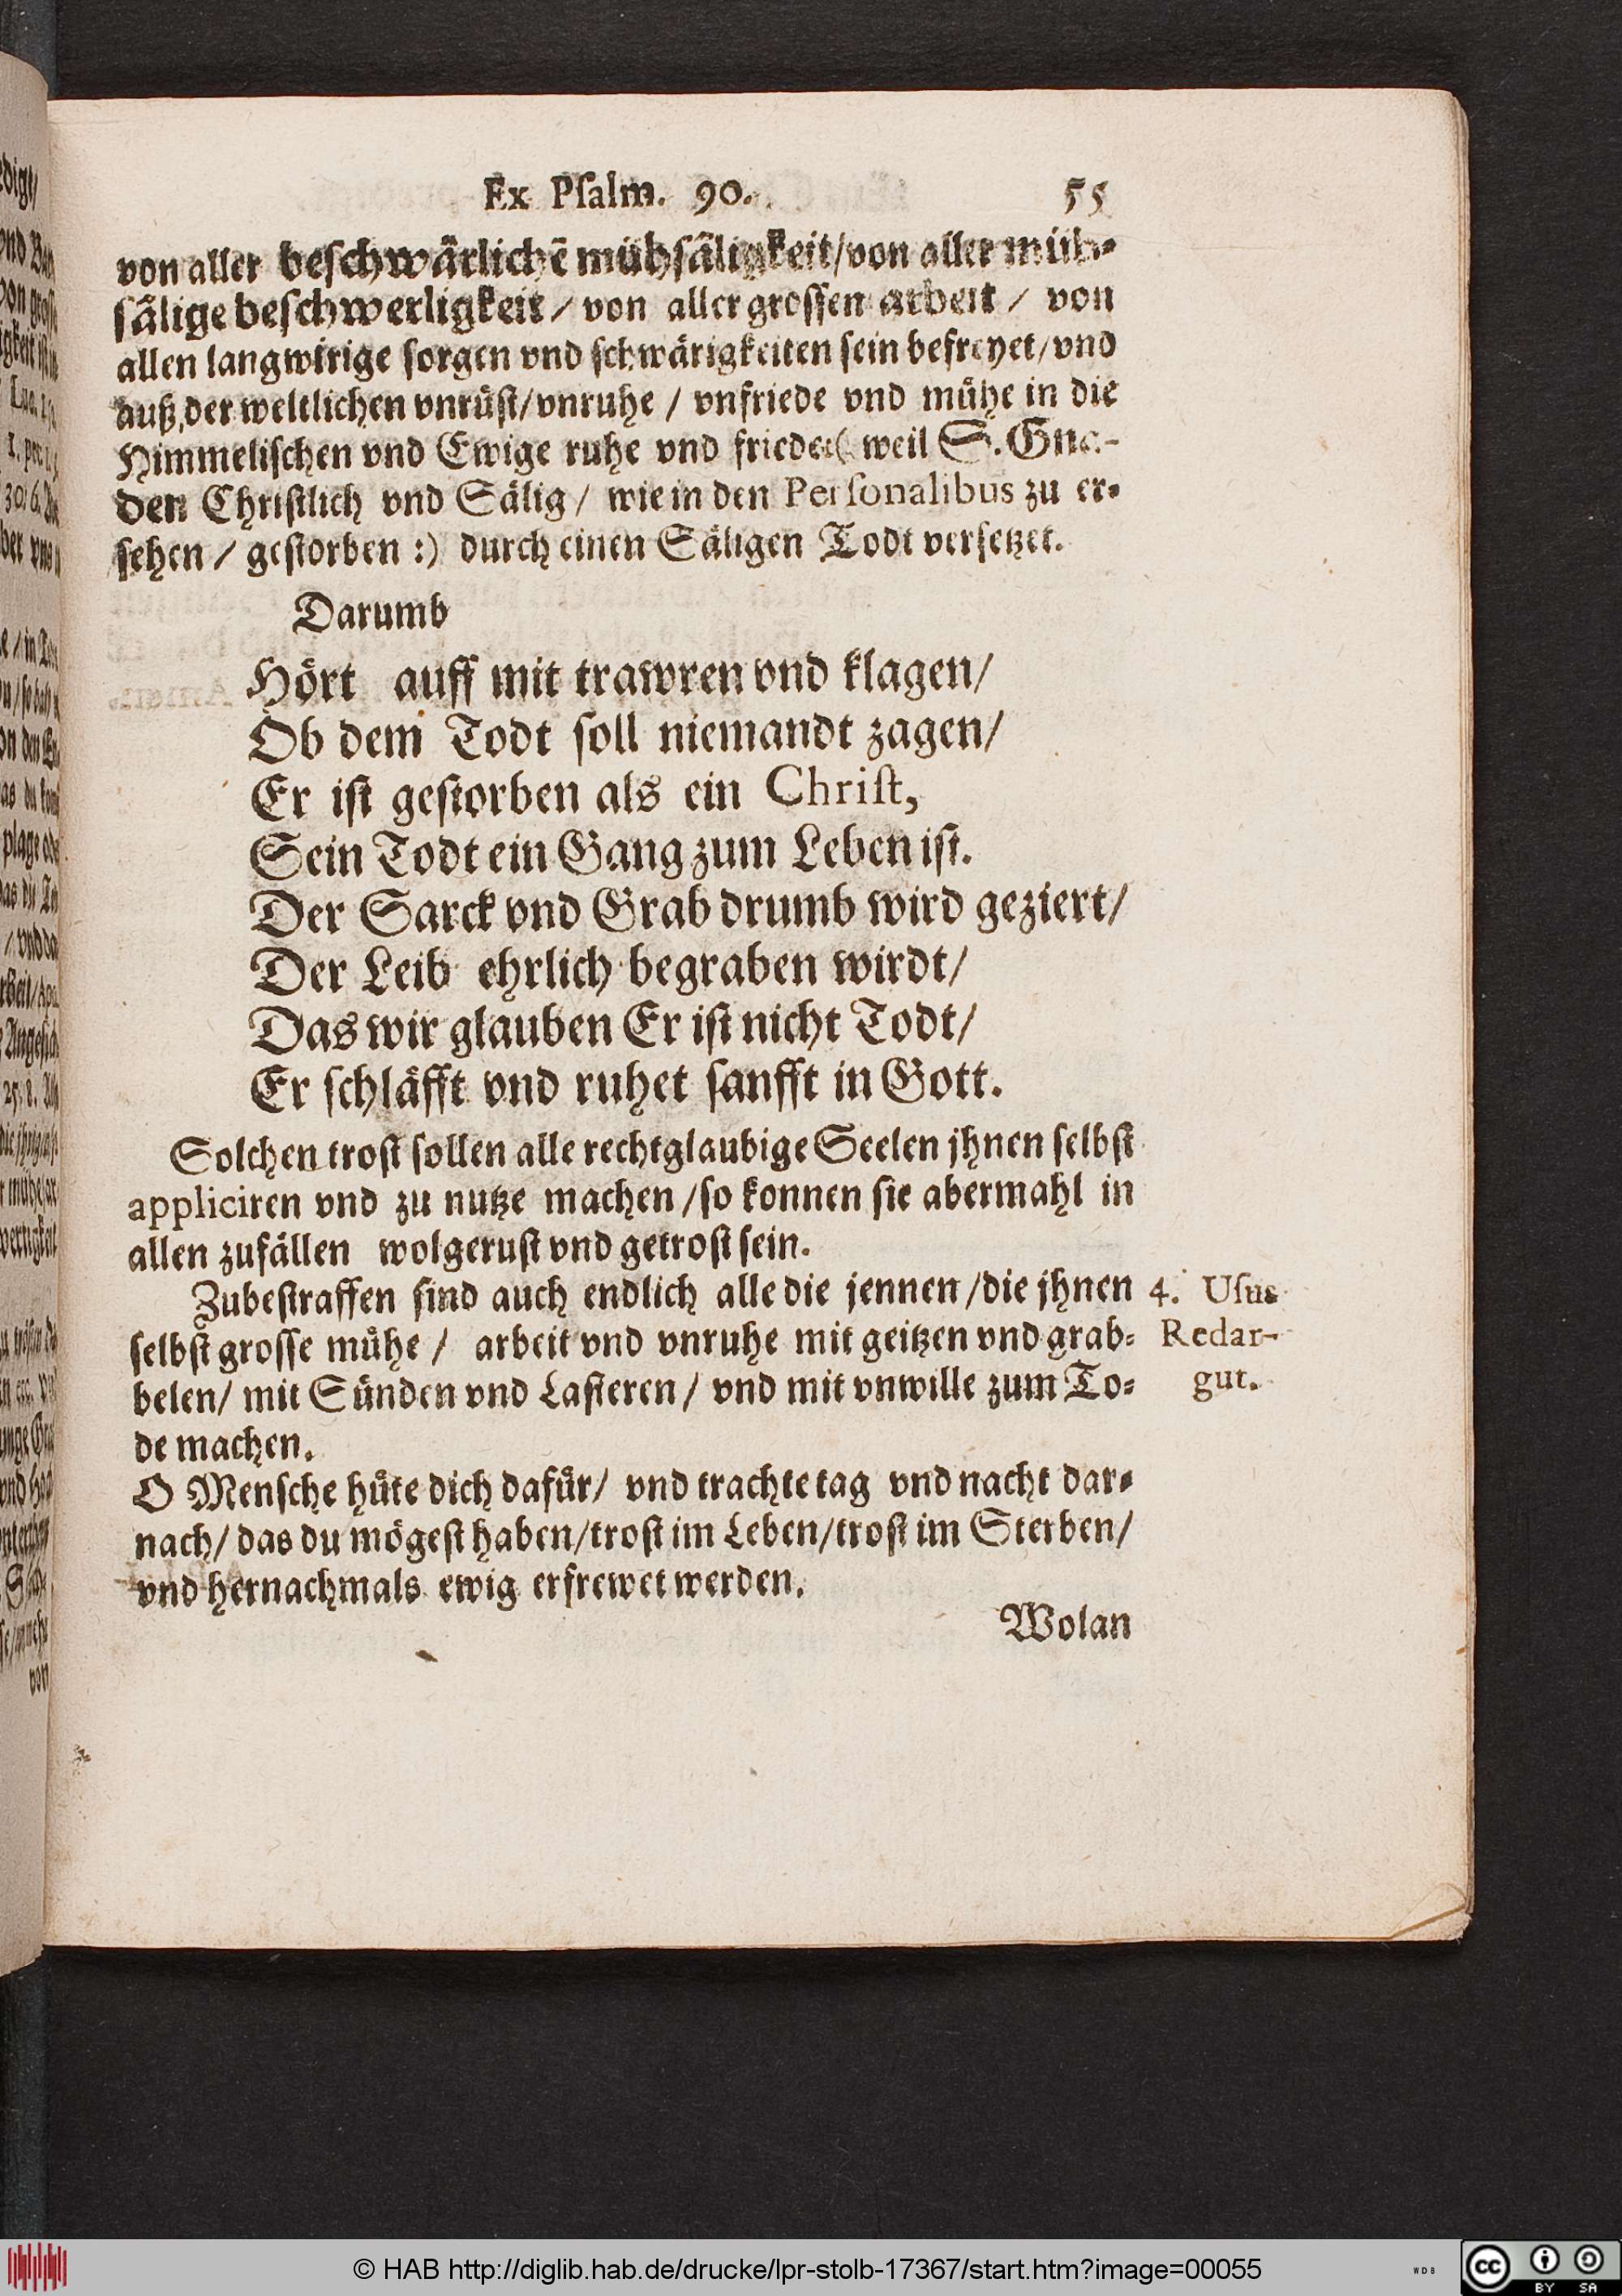 Ex Pſalm. 90.
55
von aller beſchwärlichē mühſäligkeit/von aller müh⸗
ſälige beſchwerligkeit/ von aller groſſen arbeit / von
allen langwirige ſorgen vnd ſchwärigkeiten ſein befreyet/vnd
auß der weltlichen vnrüſt/vnruhe / vnfriede vnd mühe in die
Himmeliſchen vnd Ewige ruhe vnd friede (: weil S. Gna-
den Chriſtlich vnd Sälig / wie in den Perſonalibus zu er⸗
ſehen / geſtorben :) durch einen Säligen Todt verſetzet.
Darumb
Hört auff mit trawren vnd klagen/
Ob dem Todt ſoll niemandt zagen/
Er iſt geſtorben als ein Chriſt,
Sein Todt ein Gang zum Leben iſt.
Der Sarck vnd Grab drumb wird geziert/
Der Leib ehrlich begraben wirdt/
Das wir glauben Er iſt nicht Todt/
Er ſchläfft vnd ruhet ſanfft in Gott.
Solchen troſt ſollen alle rechtglaubige Seelen jhnen ſelbſt
appliciren vnd zu nutze machen /ſo konnen ſie abermahl in
allen zufällen wolgeruſt vnd getroſt ſein.
Zubeſtraffen ſind auch endlich alle die jennen /die jhnen
ſelbſt groſſe mühe / arbeit vnd vnruhe mit geitzen vnd grab⸗
belen/ mit Sünden vnd Laſteren/ vnd mit vnwille zum To⸗
de machen.
4. Uſus
Redar-
gut.
O Menſche hüte dich dafür/ vnd trachte tag vnd nacht dar⸗
nach/ das du mögeſt haben/troſt im Leben/troſt im Sterben/
vnd hernachmals ewig erfrewet werden.
Wolan
© HAB http://diglib.hab.de/drucke/lpr-stolb-17367/start.htm?image=00055
WDB
cc
BY SA